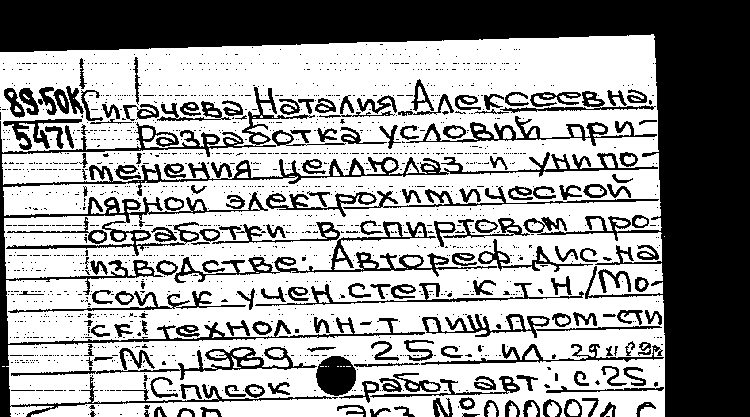 89-50К Сигачева, Наталия Алексеевна.
5471 Разработка условий при-
менения целлюлаз и унипо-
лярной электрохимической
обработки в спиртовом про-
изводстве: Автореф. дис. на
соиск. учен. степ. к.т.н./Мо-
ск. технол. ин-т пищ. пром-сти
-М., 1989.- 25с.: ил.
Список работ авт.: с.25.
Экз №0000074